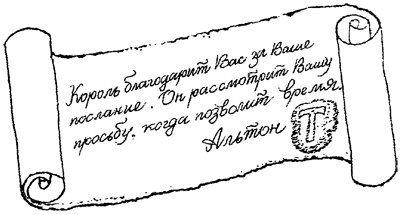 Король благодарит Вас за Ваше
послание. Он рассмотрит Вашу
просьбу, когда позволит время.
Альтон
Т